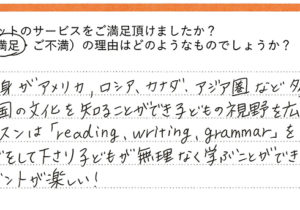 ントのサービスをご満足頂けましたか？
満足・ご不満）の理由はどのようなものでしょうか？
身がアメリカ, ロシア、カナダ、アジア圏など
国の文化を知ることができ子どもの視野を広
スンは「reading、writing, grammar」を
をして下さり子どもが無理なく学ぶことができ
ントが楽しい！